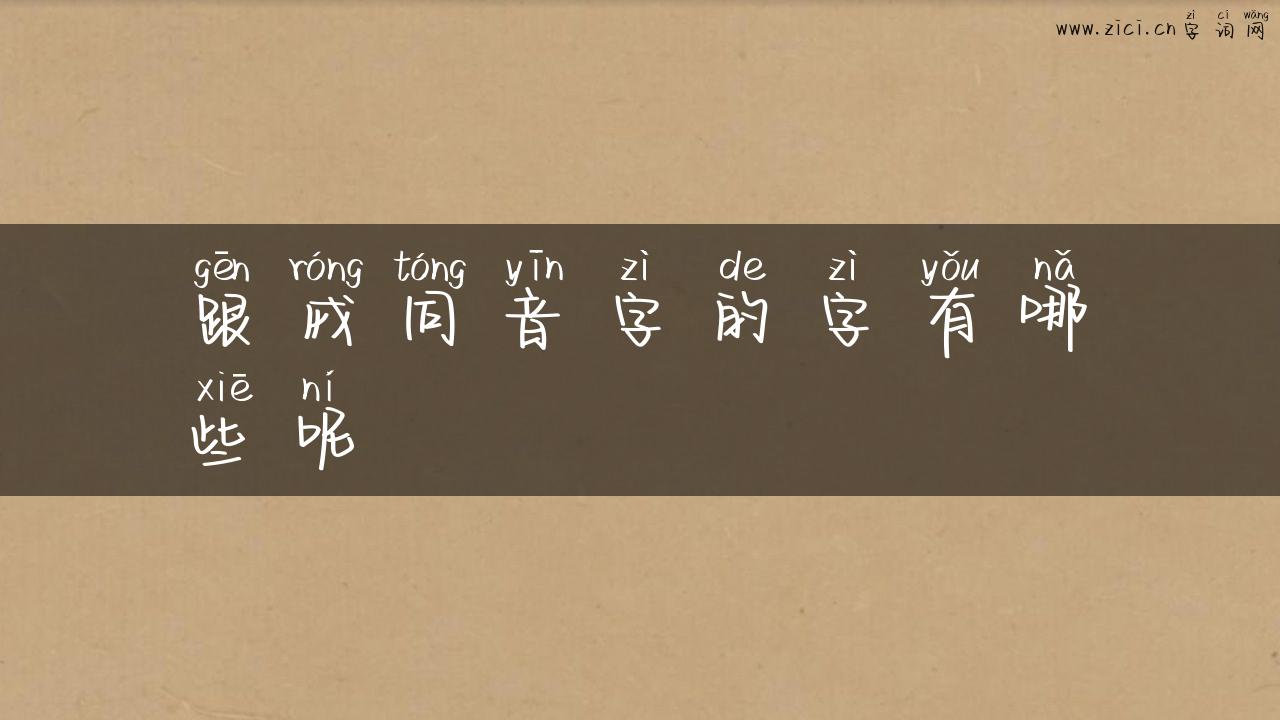 zì cí wǎng
www.zici.cn 字 词 网
gēn róng tóng yīn zì de zì yǒu nǎ
跟 戎 同 音 字 的 字 有 哪
xiē ní
些 呢